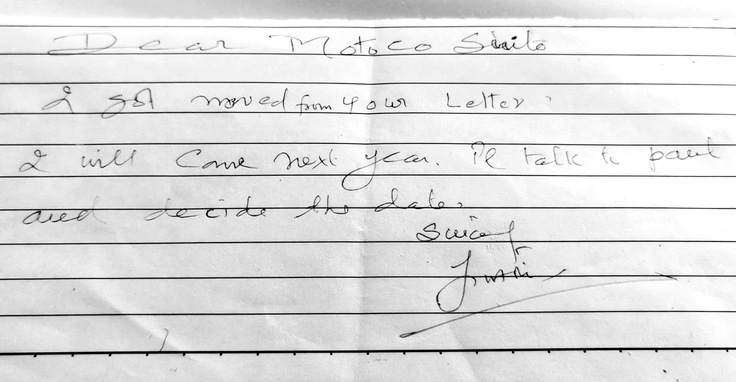 Dear Motoco
I got moved from your Letter.
I will come next year. I'll talk to paul
and decide the date.